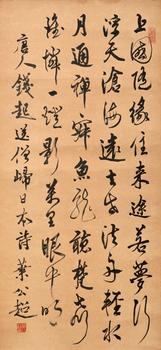 上國隨緣住來途若夢行
浮天滄海遠去世法舟輕水
月通禪寂魚龍聽梵聲
惟憐一燈影萬里眼中明
唐人錢起送僧歸日本詩 葉公超